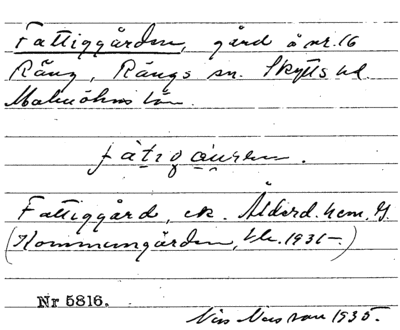 Fattiggården, gård å nr. 16
Räng, Rängs sn. Skytts hd.
Malmöhus län.
Fattiggård, Ålderd.hem.
(Kommungården, 1935-)
Nr 5816.
Nils 1935.